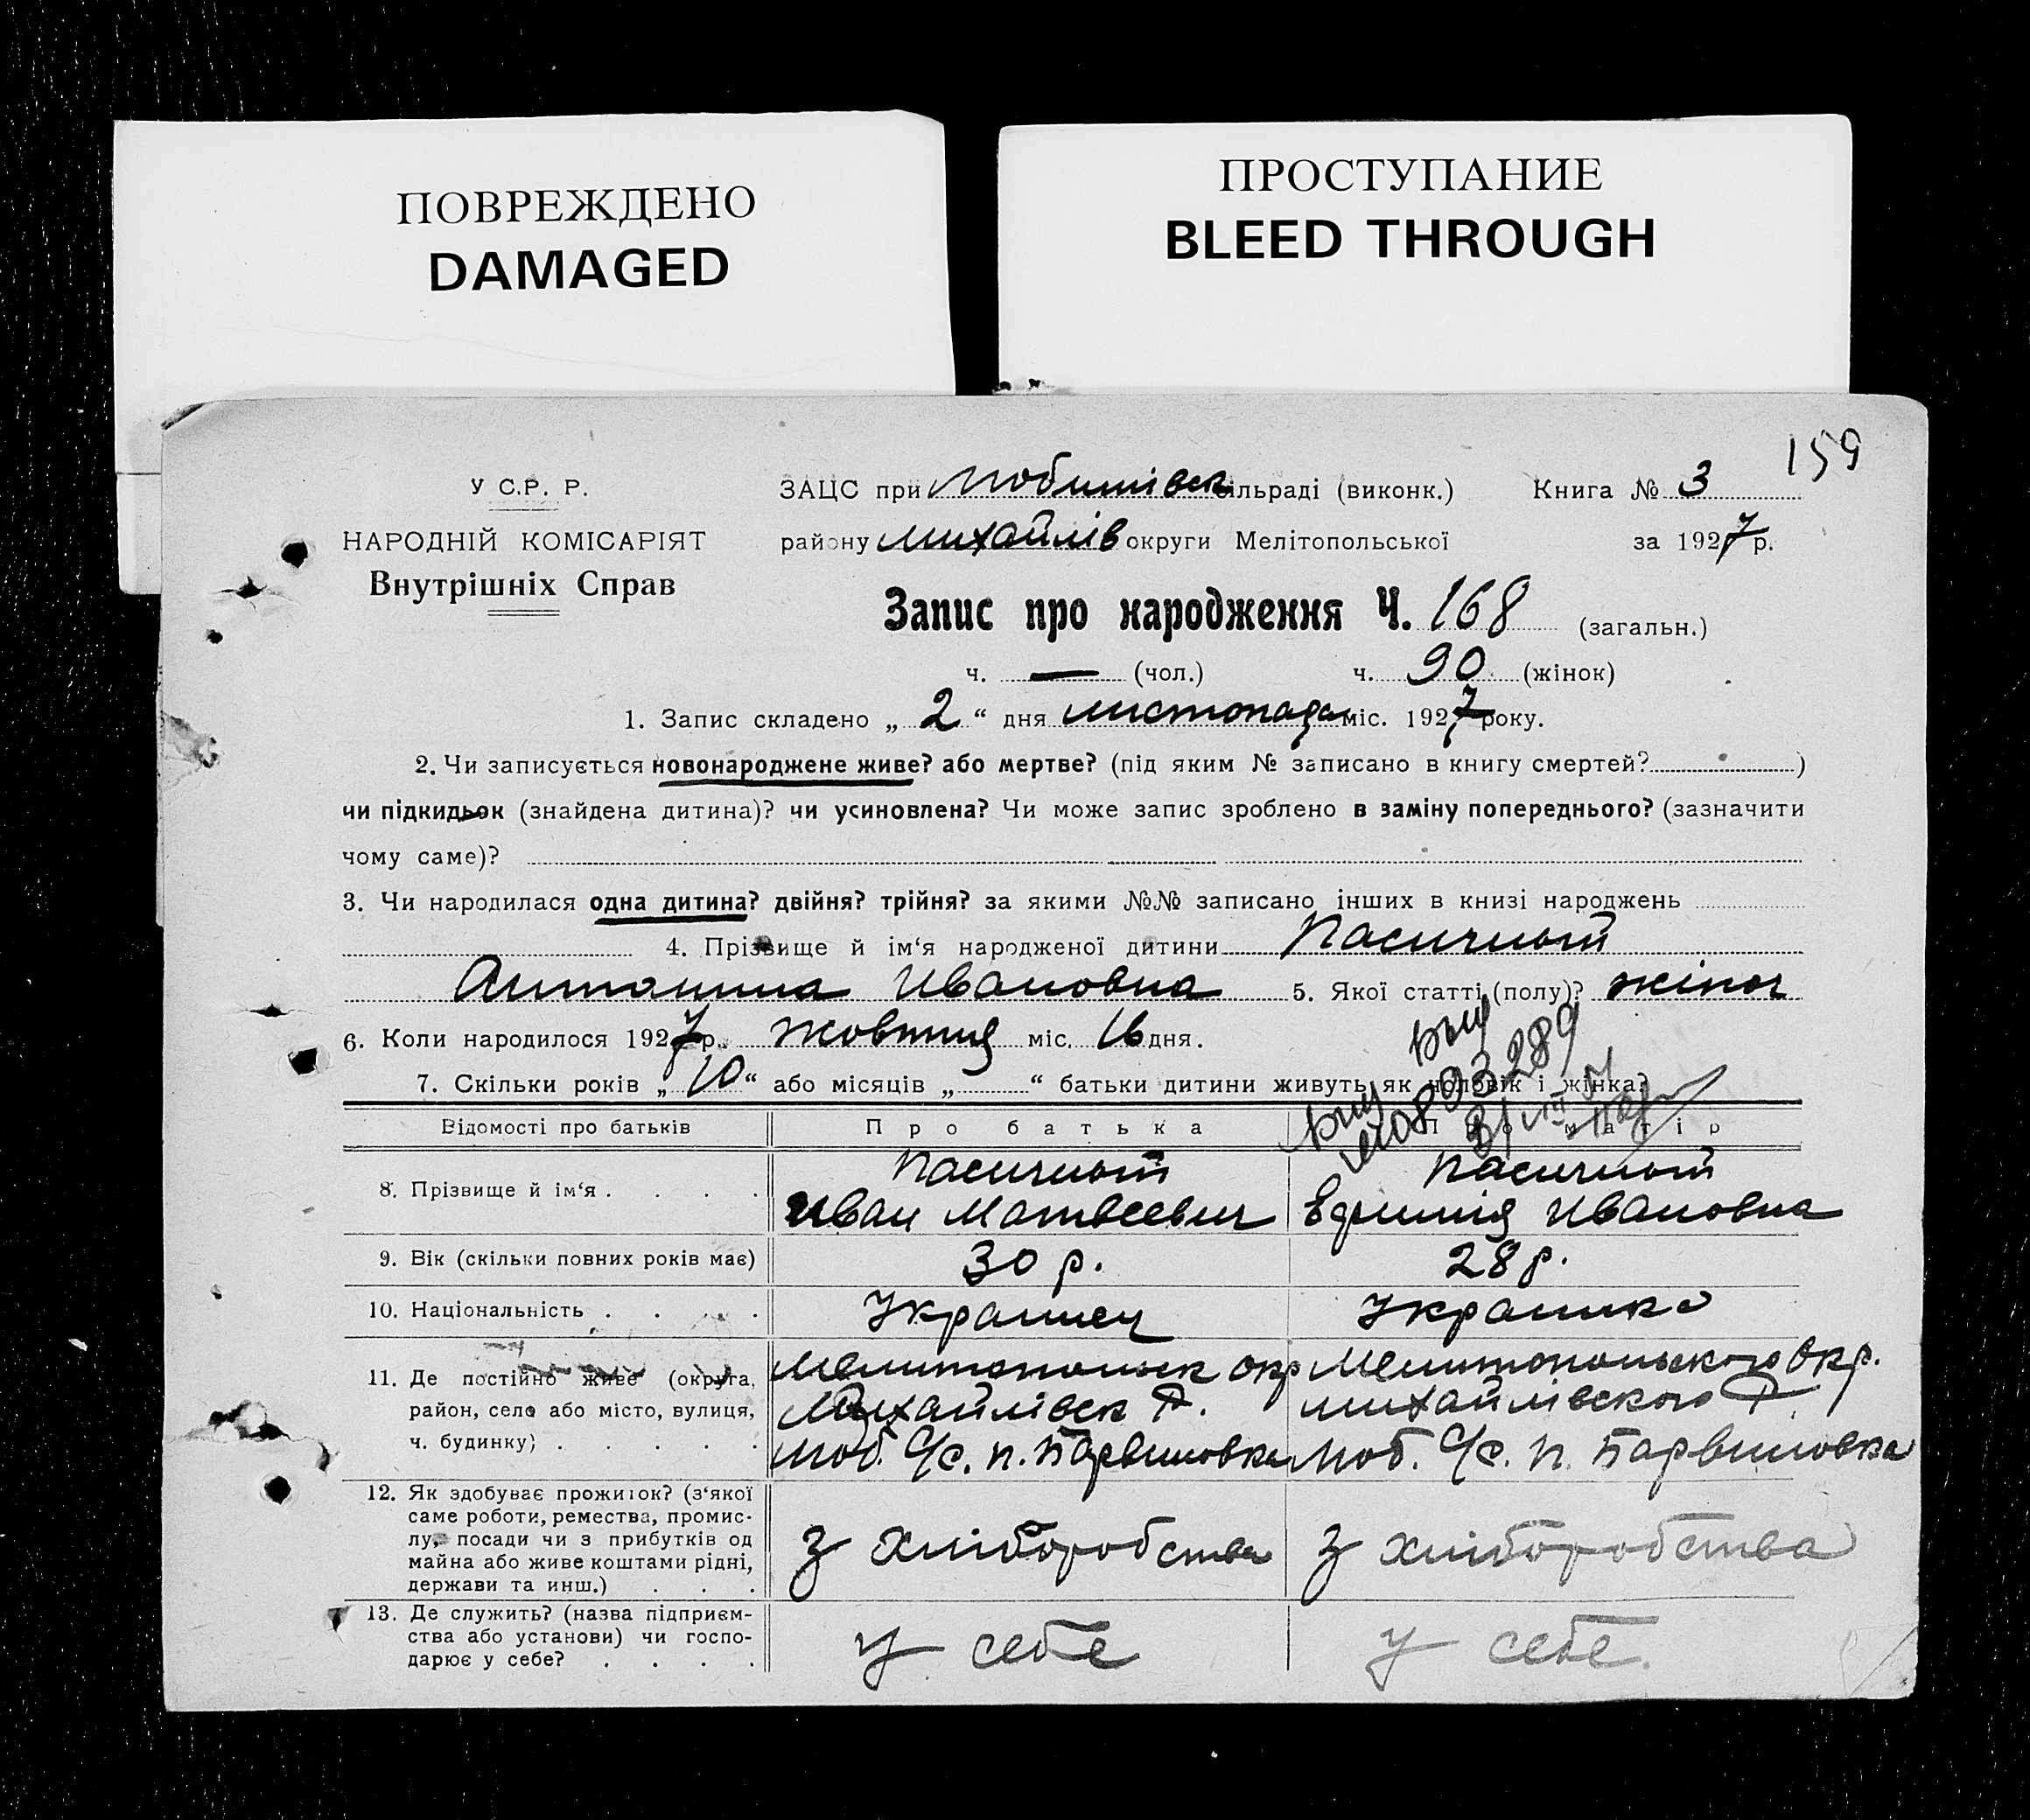 ПОВРЕЖДЕНО
DAMAGED
ПРОСТУПАНИЕ
BLEED THROUGH
159
У С.Р. Р.
НАРОДНІЙ КОМІСАРІЯТ
Внутрішніх Справ
ЗАЦС при Любимівск сільраді (виконк.) Книга № 3
району Михайлів округи Мелітопольської за 1927 р.
Запис про народження Ч. 168 (загальн.)
ч. — (чол.) ч. 90 (жінок)
1. Запис складено „ 2 “ дня листопада міс. 1927 року.
2. Чи записується новонароджене живе? або мертве? (під яким № записано в книгу смертей? )
чи підкидьок (знайдена дитина)? чи усиновлена? Чи може запис зроблено в заміну попереднього? (зазначити
чому саме)?
3. Чи народилася одна дитина? двійня? трійня? за якими №№ записано інших в книзі народжень
4. Прізвище й ім‘я народженої дитини Пасичный
Антонина Ивановна 5. Якої статті (полу)? жіноч
6. Коли народилося 1927 р. жовтня міс. 16 дня.
7. Скільки років „ 10 “ або місяців „ “ батьки дитини живуть як чоловік і жінка?
0893289
Відомості про батьків Про батька Про матір
8. Прізвище й ім‘я . . . . Пасичный Пасичный
Иван Матвеевич Ефимия Ивановна
9. Вік (скільки повних років має) 30 р. 28 р.
10. Національність . . . . Украинец Украинка
11. Де постійно живе (округа, Мелитопольск окр Мелитопольского Окр.
район, село або місто, вулиця, Михайлівск Р. Михайлівского Р.
ч. будинку) . . . . . Люб. С/с. п. Барвиновка Люб. С/с. п. Барвиновка
12. Як здобуває прожиток? (з‘якої
саме роботи, ремества, промис-
лу, посади чи з прибутків од
майна або живе коштами рідні,
держави та инш.) . . . З хліборобства З хліборобства
13. Де служить? (назва підприєм-
ства або установи) чи госпо-
дарює у себе? . . . . У себе У себе.